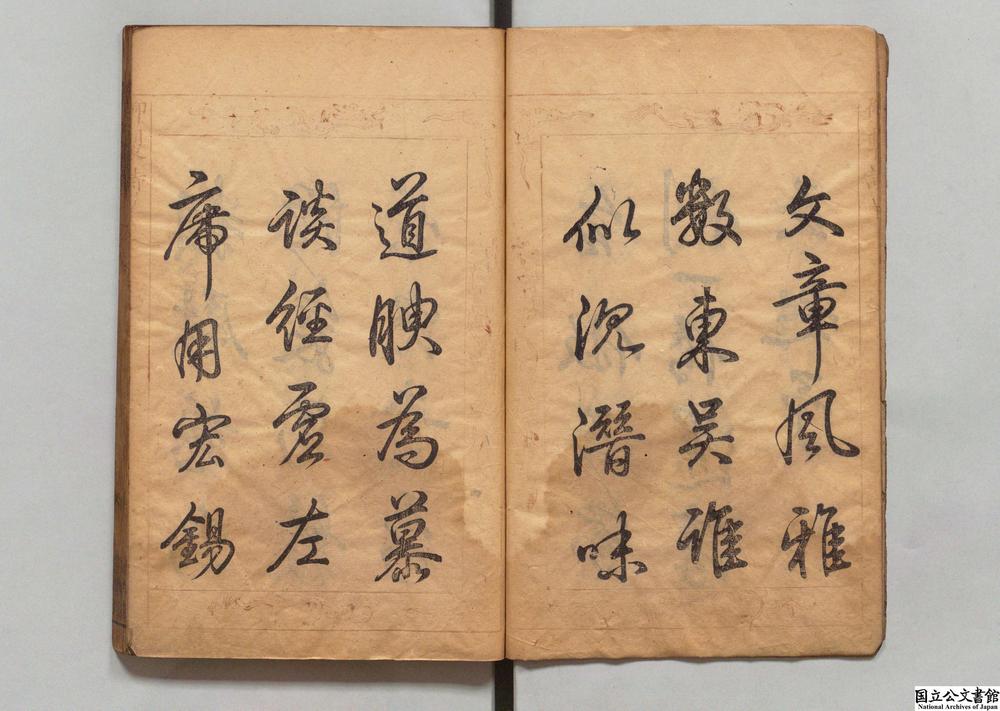 文章風雅
數東吳誰
似沉潛味
道腴為慕
談經虛左
席用宏錫
国立公文書館
National Archives of Japan